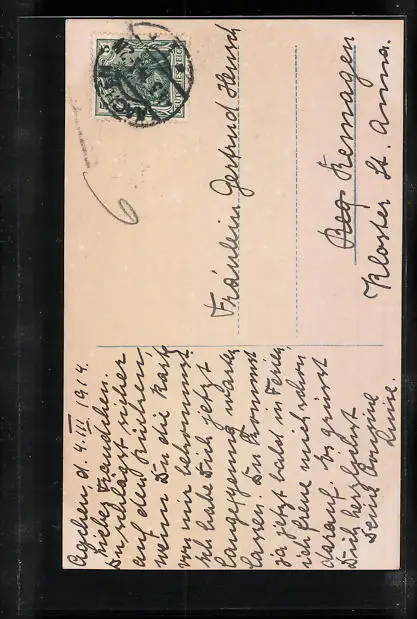 Aachen, d. 4. III 1914.
Liebes Traudchen.
Du schlägst sicher
auf den Rücken,
wenn Du die Karte
von mir bekommst.
Ich habe Dich jetzt
lange genug warten
lassen. Du kommst
ja jetzt bald in Ferien,
ich freue mich schon
darauf. Es grüsst
Dich herzlichst
Deine Cousine
Fräulein Gertrud Hensch
Remagen
Kloster St. Anna.
6